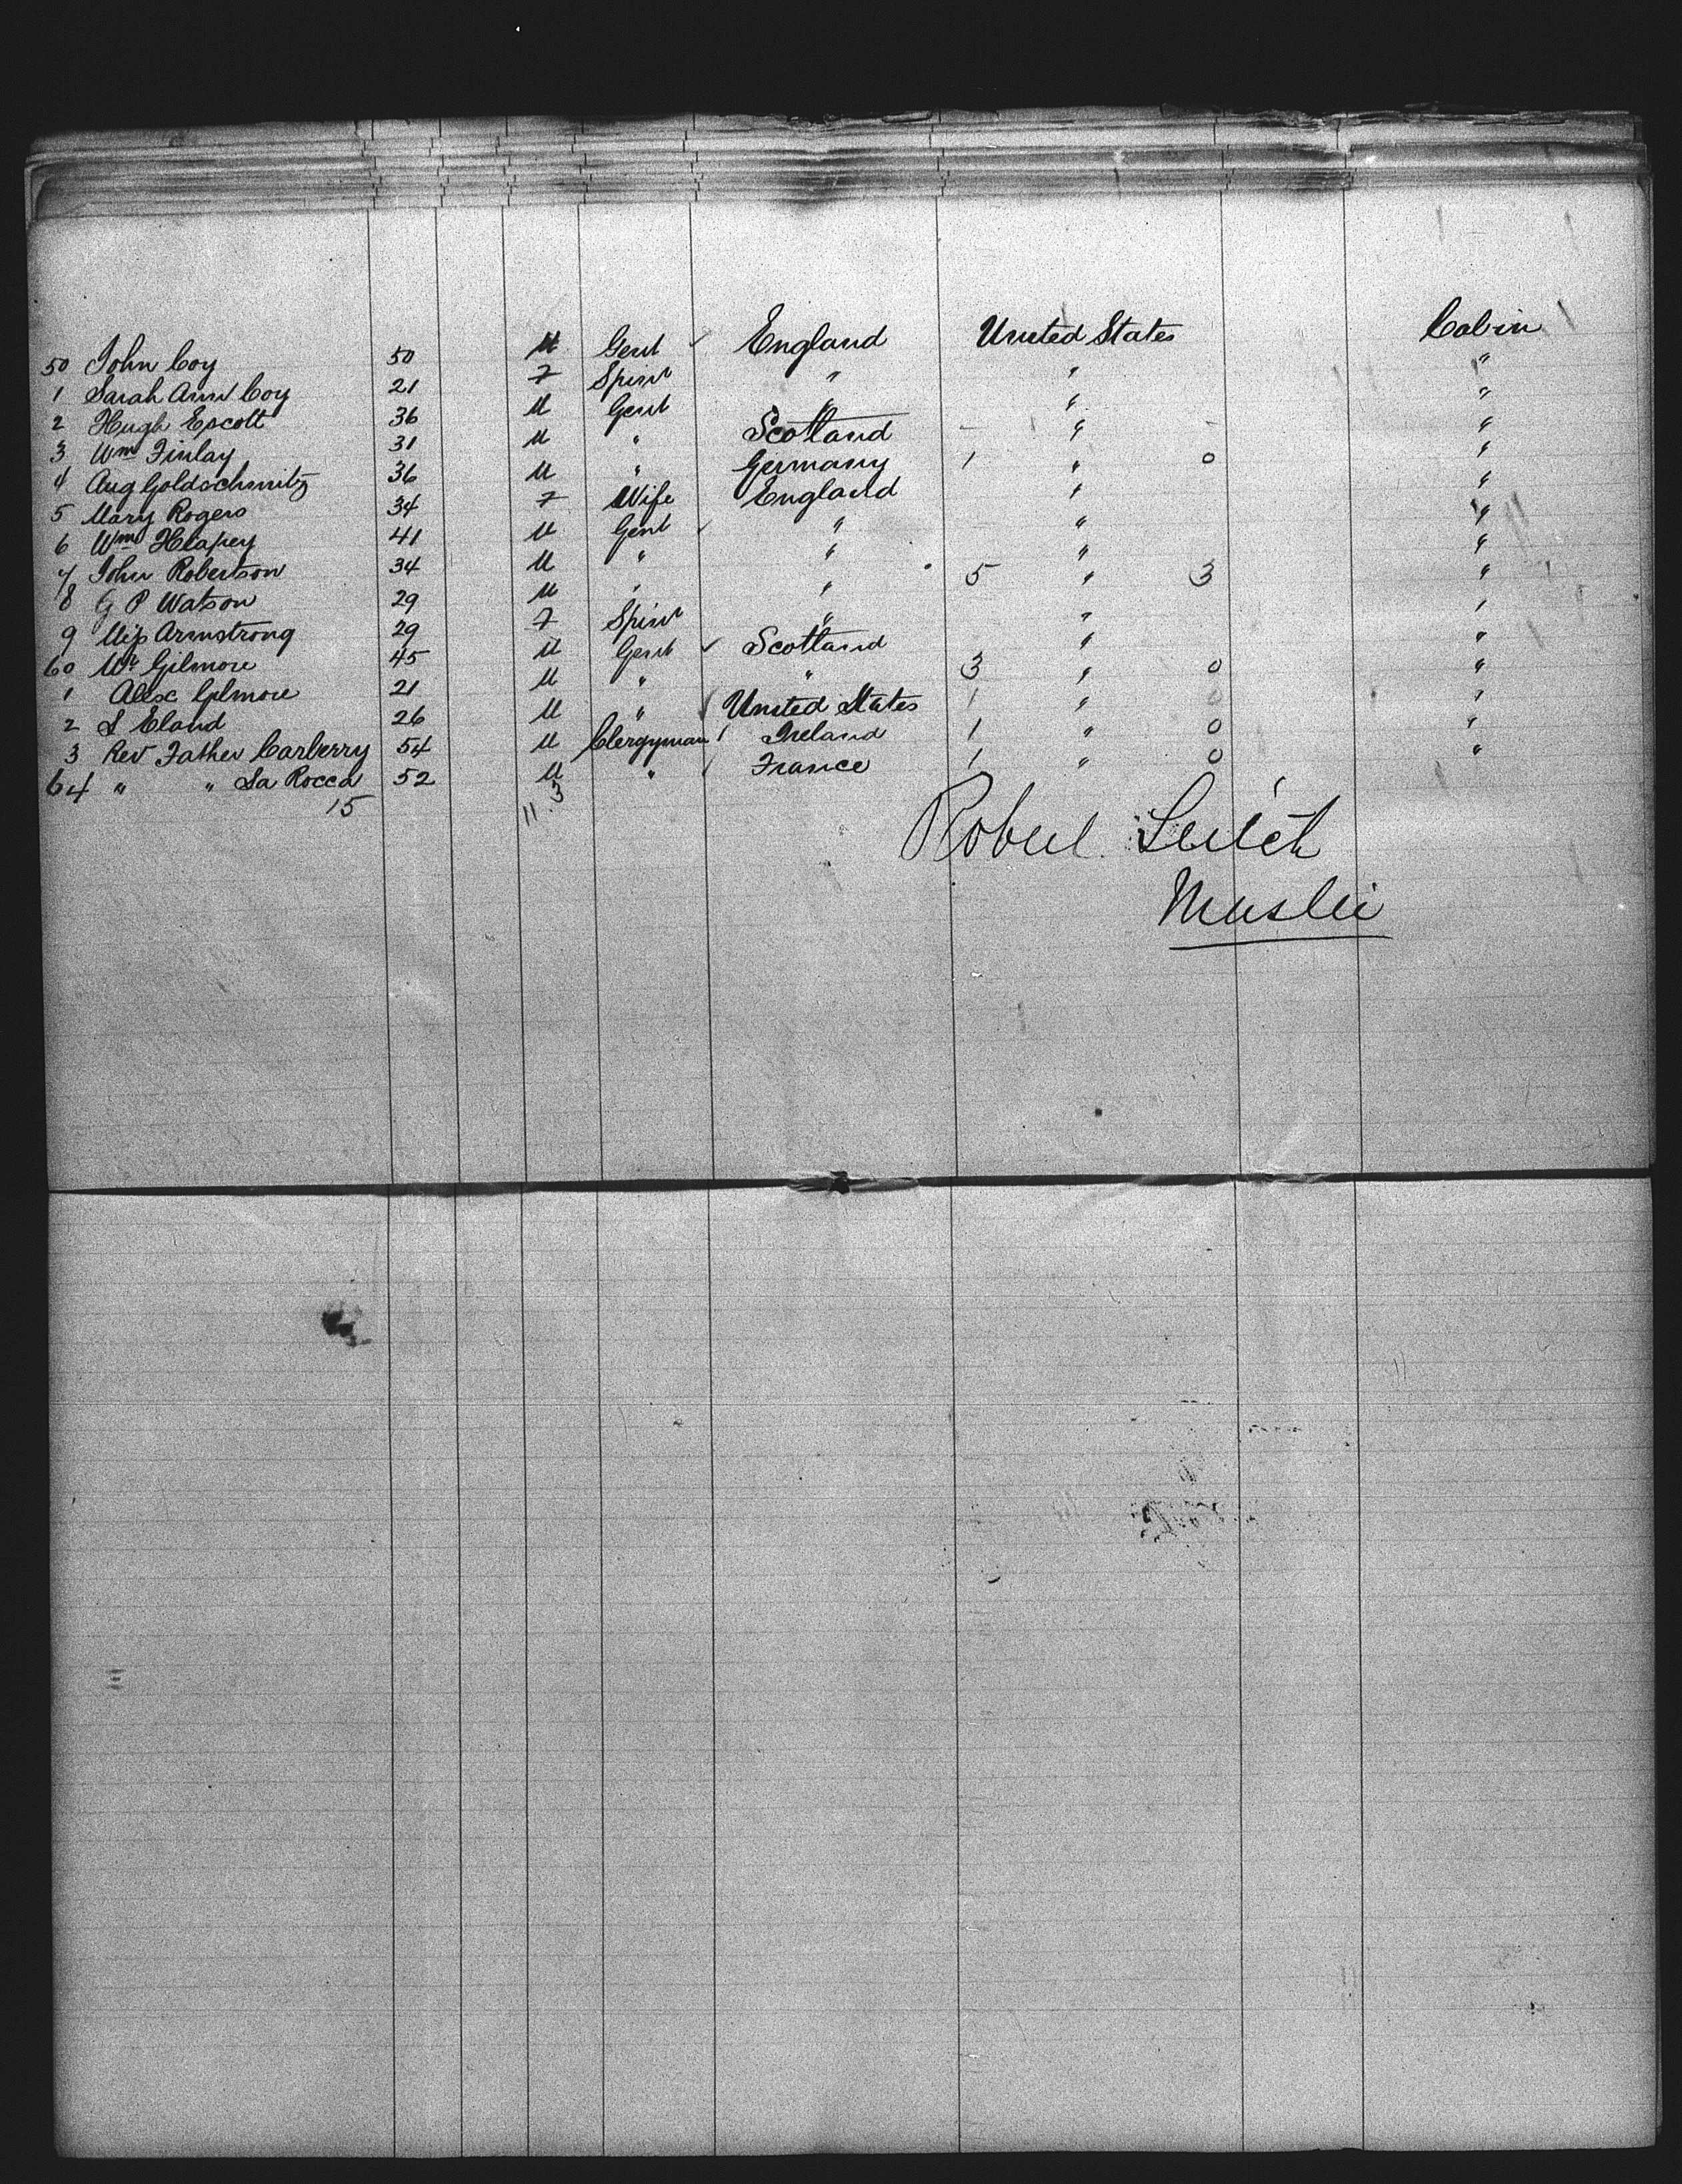 50 John Coy 50 M Gent England United States Cabin
1 Sarah Ann Coy 21 F Spinr " " "
2 Hugh Escott 36 M Gent " " "
3 Wm Finlay 31 M " Scotland " "
4 Aug Goldschmitz 36 M " Germany 1 " 0 "
5 Mary Rogers 34 F Wife England " "
6 Wm Heapey 41 M Gent " " "
7 John Robertson 34 M " " " "
8 G P Watson 29 M " " 5 " 3 "
9 Miss Armstrong 29 F Spinr " " "
60 Mr Gilmore 45 M Gent Scotland " "
1 Alex Gilmore 21 M " " 3 " 0 "
2 S Eland 26 M " United States 1 " 0 "
3 Rev Father Carberry 54 M Clergyman Ireland 1 " 0 "
64 " " La Rocca 52 M " France 1 " 0 "
15 11 3
Robert Leitch
Master